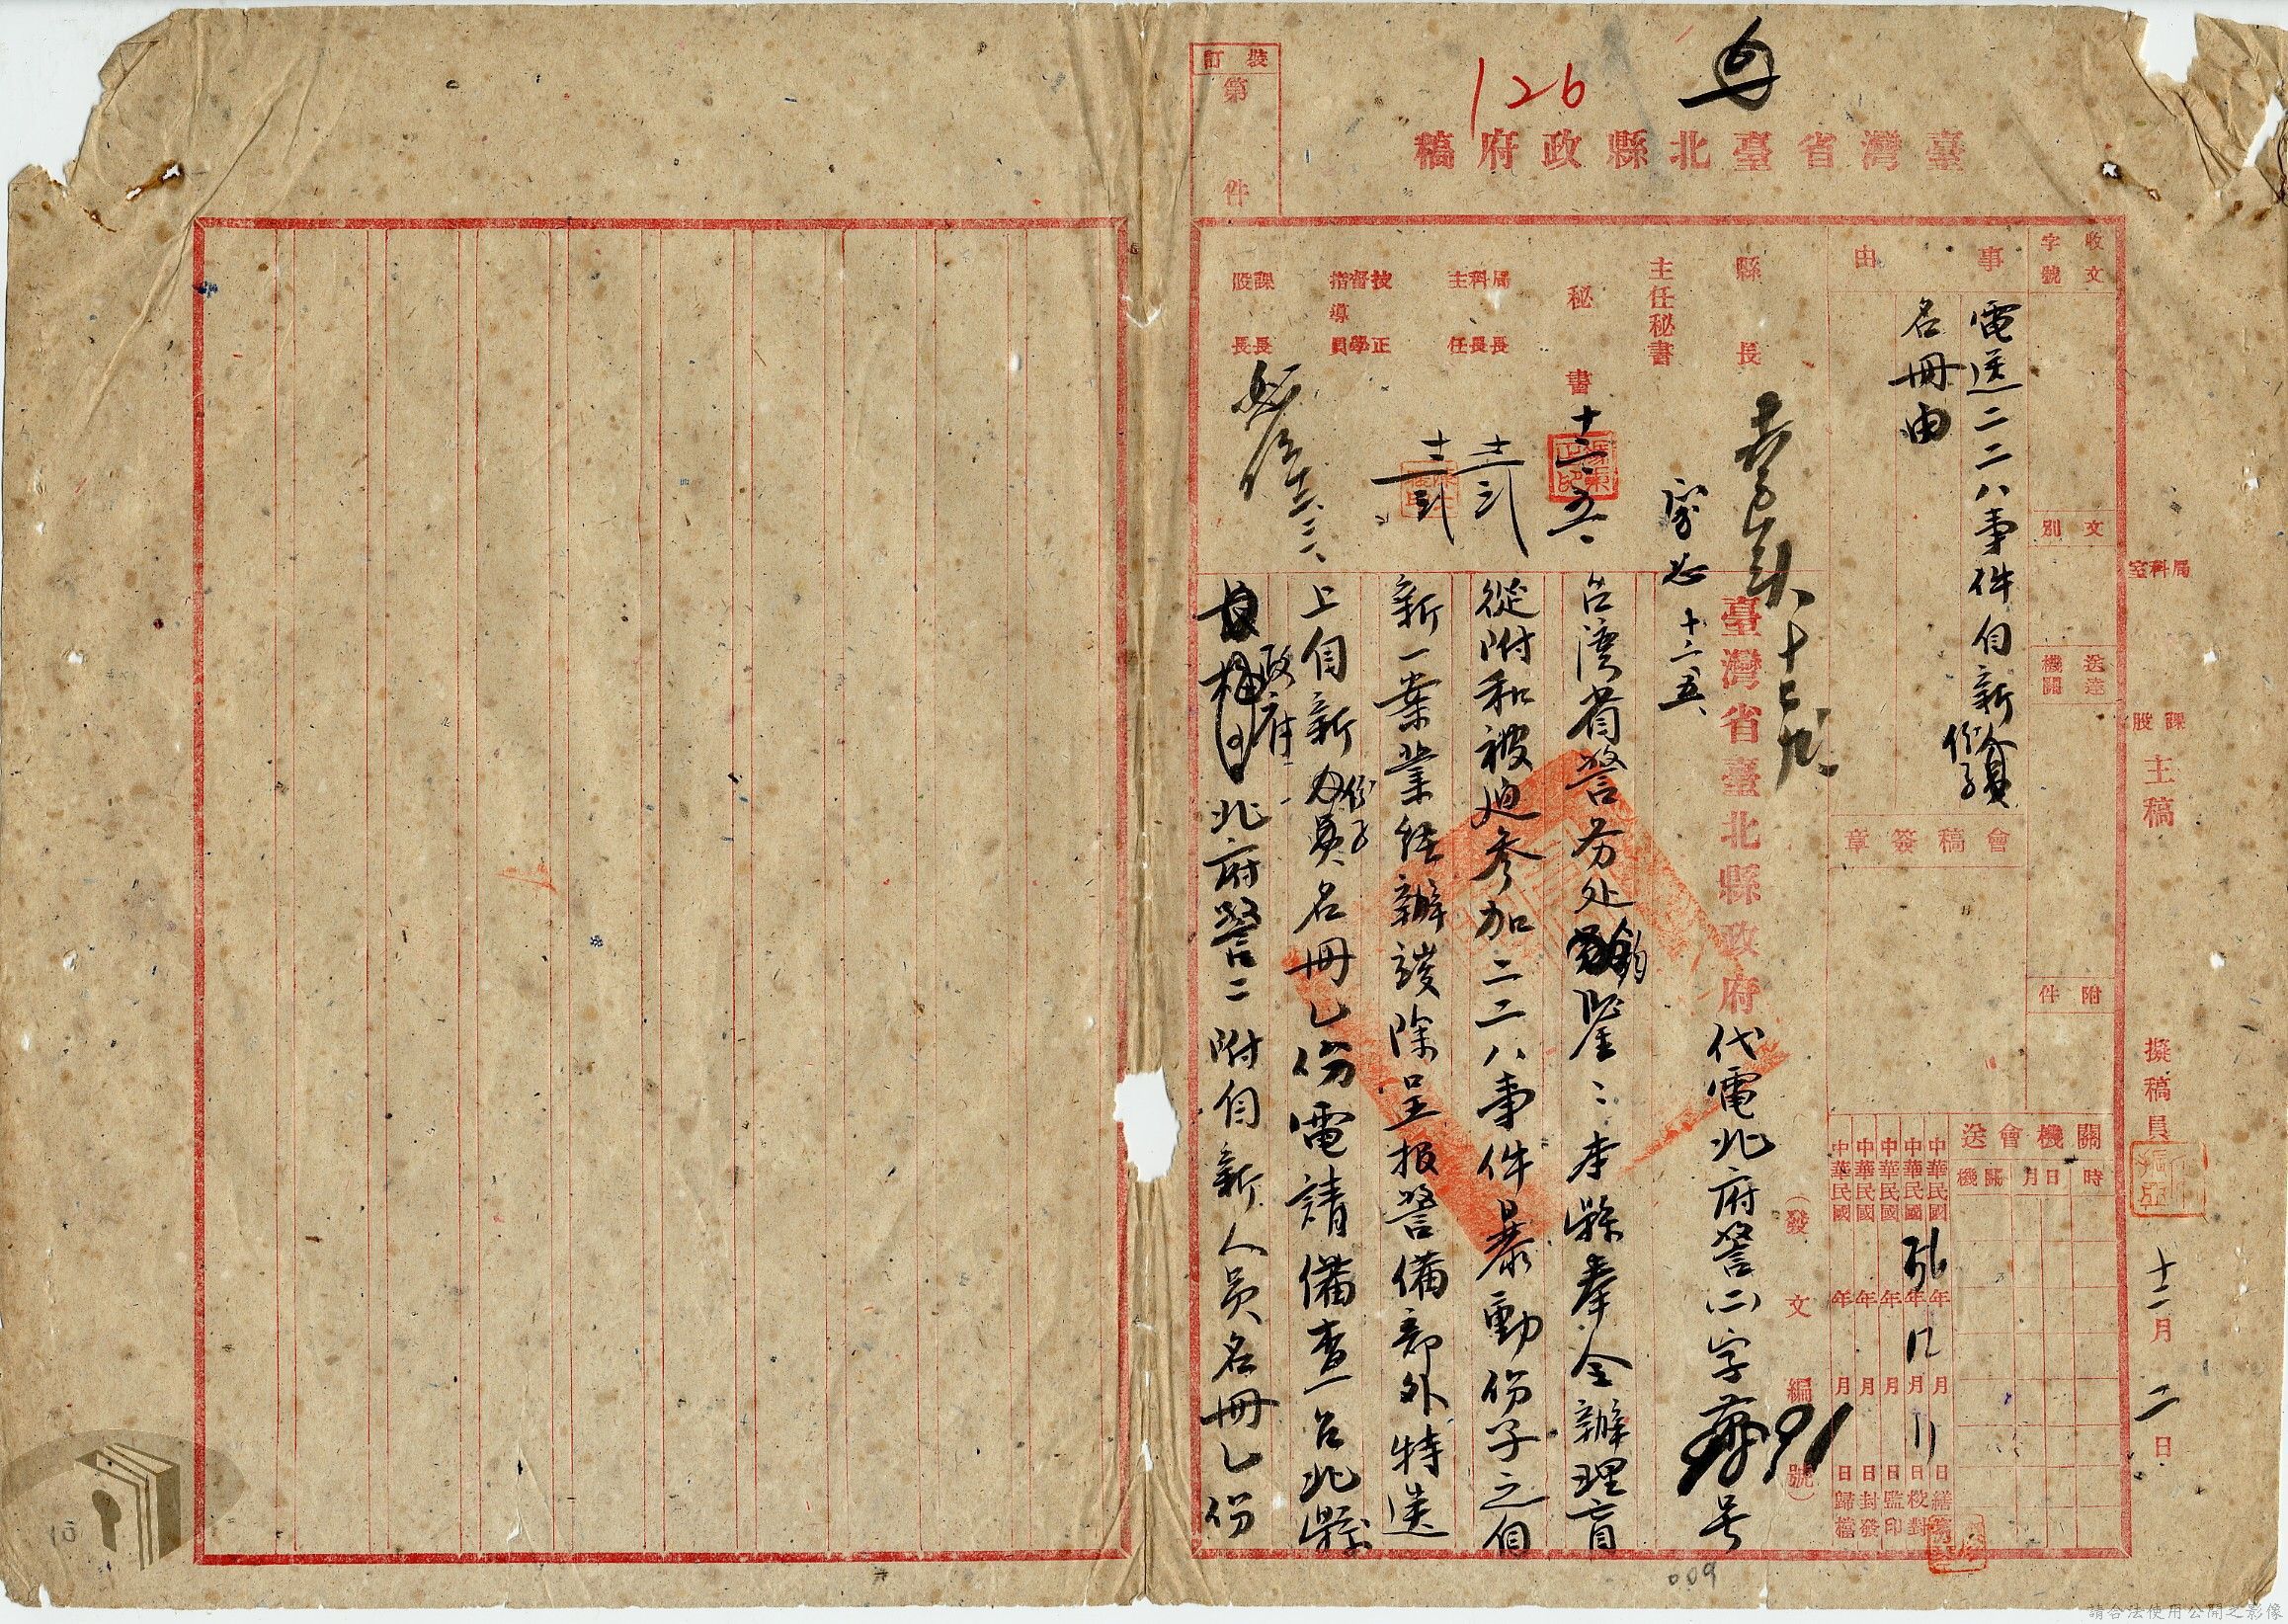 臺灣省臺北縣政府稿
126
裝訂
第 件
收文
字號
文別
送達
機關
附件
局科室
課股
主稿
擬稿員
十二月二日
事由
電送二二八事件自新份子
名冊由
會稿簽章
關機會送
時
月日
機關
中華民國 年 月 日繕寫
中華民國卅六年12月11日校對
中華民國 年 月 日監印
中華民國 年 月 日封發
中華民國 年 月 日歸檔
(發文編號)
縣長
主任秘書
十二、五
秘書
十二、五
局科主
長長任
技督指導
正學員
課股
長長
臺灣省臺北縣政府代電北府警(二)字第91号
台灣省警务处鈞鑒:本縣奉令辦理盲
從附和被迫參加二二八事件暴動份子之自
新一案業經辦竣除呈报警備部外特送
上自新份子名冊乙份電請備查台北縣
政府
北府警二附自新人員名冊乙份
009
10
請合法使用公開之影像